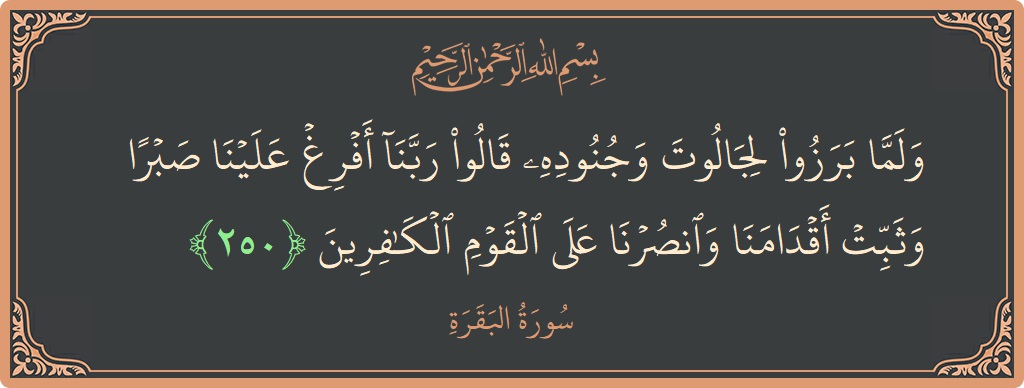 بِسْمِ اللَّهِ الرَّحْمَٰنِ الرَّحِيمِ
وَلَمَّا بَرَزُوا۟ لِجَالُوتَ وَجُنُودِهِۦ قَالُوا۟ رَبَّنَآ أَفْرِغْ عَلَيْنَا صَبْرًا
وَثَبِّتْ أَقْدَامَنَا وَٱنصُرْنَا عَلَى ٱلْقَوْمِ ٱلْكَـٰفِرِينَ ﴿٢٥٠﴾
سُورَةُ البَقَرَةِ